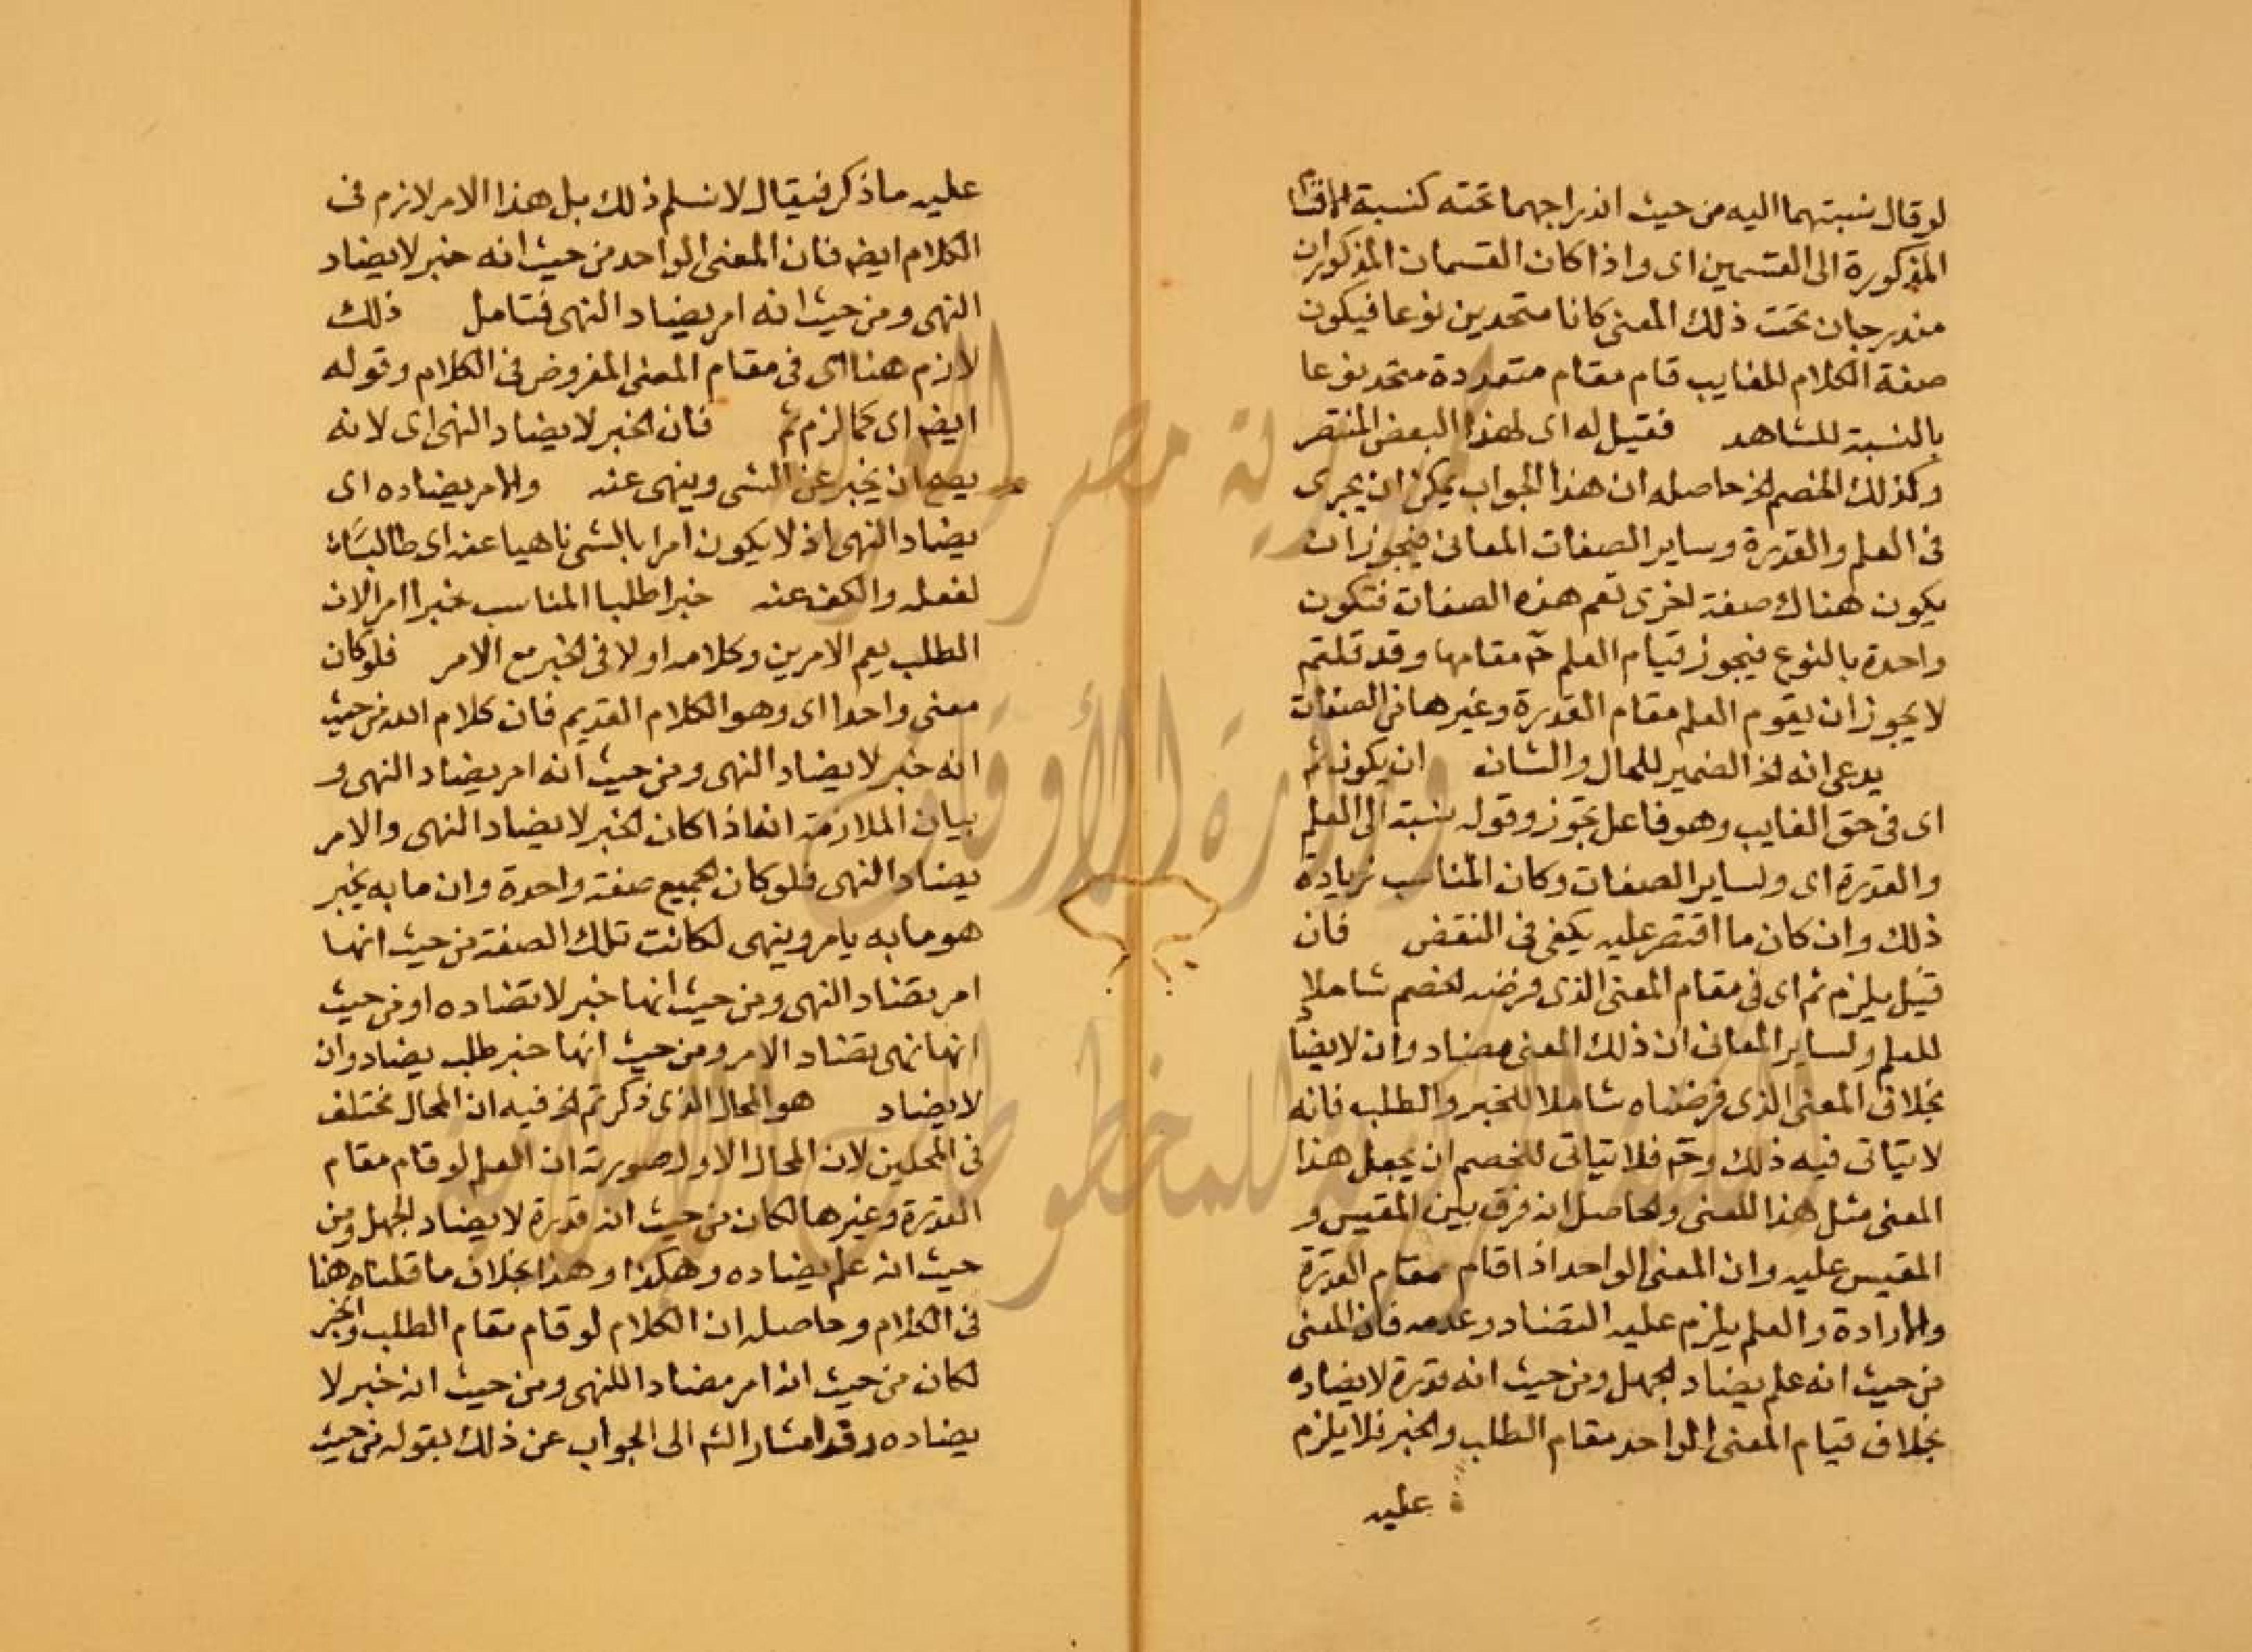 لو قال نسبتهما اليه من حيث اندراجهما تحته كنسبة الاقسام
المذكورة الى القسمين اى واذا كان القسمان المذكوران
مندرجان تحت ذلك المعنى كانا متحدين نوعا فيكون
صفة الكلام للغايب قام مقام متعددة متحد نوعا
بالنسبة للشاهد فقيل له اى لهذا البعض المنتصر
وكذلك الخصم الخ حاصله ان هذا الجواب يمكن ان يجرى
فى العلم والقدرة وساير الصفات المعانى فيجوز ان
يكون هناك صفة اخرى تعم هذه الصفات فتكون
واحدة بالنوع فيجوز قيام العلم ح مقامها وقد قلتم
لا يجوز ان يقوم العلم مقام القدرة وغيرها من الصفات
يدعى انه الخ الضمير للحال والشان ان يكون ثم
اى فى حق الغايب وهو فاعل يجوز وقوله نسبة الى العلم
والقدرة اى ولساير الصفات وكان المناسب زيادة
ذلك وان كان ما اقتصر عليه يكفى فى النقض فان
قيل يلزم ثم اى فى مقام المعنى الذى فرضه الخصم شاملا
للعلم ولساير المعانى ان ذلك المعنى مضاد وان لا يضا
بخلاف المعنى الذى فرضناه شاملا للخبر والطلب فانه
لا يتاتى فيه ذلك وح فلا يتاتى للخصم ان يجعل هذا
المعنى مثل هذا المعنى والحاصل انه فرق بين المقيس و
المقيس عليه وان المعنى الواحد اذا قام مقام القدرة
والارادة والعلم يلزم عليه التضاد وعدمه فان المعنى
من حيث انه علم يضاد الجهل ومن حيث انه قدرة لا يضاده
بخلاف قيام المعنى الواحد مقام الطلب والخبر فلا يلزم
عليه
عليه ما ذكر فيقال لا نسلم ذلك بل هذا الامر لازم فى
الكلام ايضه فان المعنى الواحد من حيث انه خبر لا يضاد
النهى ومن حيث انه امر يضاد النهى فتامل ذلك
لازم هنا اى فى مقام المعنى المفروض فى الكلام وقوله
ايضه اى كما لزم ثم فان الخبر لا يضاد النهى اى لانه
يصح ان يخبر عن الشى وينهى عنه والامر يضاده اى
يضاد النهى اذ لا يكون امرا بالشى ناهيا عنه اى طالبا
لفعله والكف عنه خبرا طلبا المناسب خبرا امرا لان
الطلب يعم الامرين وكلامه اولا فى الخبر مع الامر فلو كان
معنى واحدا اى وهو الكلام القديم فان كلام الله من حيث
انه خبر لا يضاد النهى ومن حيث انه امر يضاد النهى و
بيان الملازمة انه اذا كان الخبر لا يضاد النهى والامر
يضاد النهى فلو كان الجميع صفة واحدة وان ما به يخبر
هو ما به يامر وينهى لكانت تلك الصفة من حيث انها
امر تضاد النهى ومن حيث انها خبر لا تضاده او من حيث
انها نهى تضاد الامر ومن حيث انها خبر طلب يضاد وان
لا يضاد هو المحال الذى ذكرتم الخ فيه ان المحال مختلف
فى المحلين لان المحال الاول صورته ان العلم لو قام مقام
القدرة وغيرها لكان من حيث انه قدرة لا يضاد الجهل ومن
حيث انه علم يضاده وهكذا وهذا بخلاف ما قلناه هنا
فى الكلام وحاصله ان الكلام لو قام مقام الطلب والخبر
لكان من حيث انه امر مضادا للنهى ومن حيث انه خبر لا
يضاده وقد اشار الش الى الجواب عن ذلك بقوله من حيث